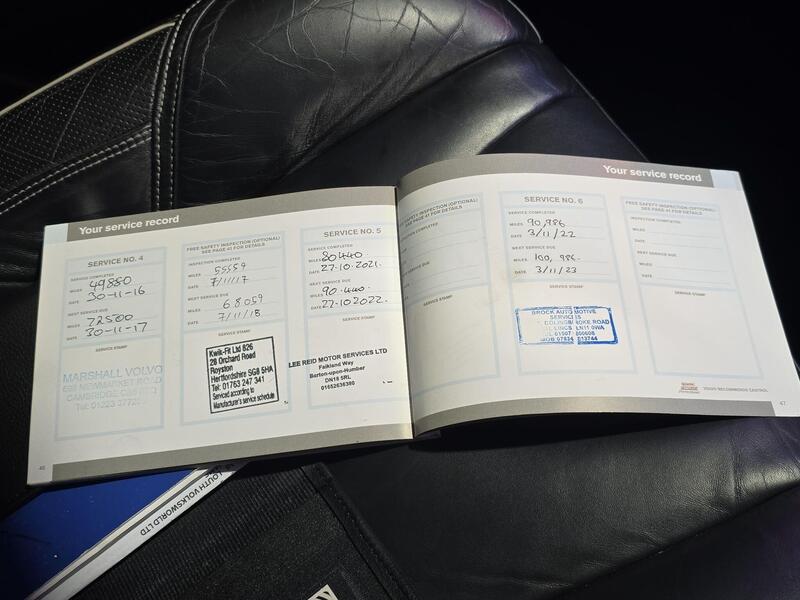 Your service record
SERVICE NO. 4
SERVICE COMPLETED
MILES 49880
DATE 30-11-16
NEXT SERVICE DUE
MILES 72500
DATE 30-11-17
SERVICE STAMP
MARSHALL VOLVO
NEWMARKET ROAD
CAMBRIDGE
Tel: 01223
46
FREE SAFETY INSPECTION (OPTIONAL)
SEE PAGE 41 FOR DETAILS
INSPECTION COMPLETED
MILES 55559
DATE 7/11/17
NEXT SERVICE DUE
MILES 68059
DATE 7/11/18
SERVICE STAMP
Kwik-Fit Ltd 826
28 Orchard Road
Royston
Hertfordshire SG8 5HA
Tel: 01763 247 341
Serviced according to
Manufacturer's service schedule
SERVICE NO. 5
SERVICE COMPLETED
MILES 80440
DATE 27-10-2021.
NEXT SERVICE DUE
MILES 90-440
DATE 27-10-2022.
SERVICE STAMP
LEE REID MOTOR SERVICES LTD
Falkland Way
Barton-upon-Humber
DN18 5RL
01652636380
Your service record
FREE SAFETY INSPECTION (OPTIONAL)
SEE PAGE 41 FOR DETAILS
COMPLETED
SERVICE DUE
SERVICE STAMP
SERVICE NO. 6
SERVICE COMPLETED
MILES 90,986
DATE 3/11/22
NEXT SERVICE DUE
MILES 100,986
DATE 3/11/23
SERVICE STAMP
BROCK AUTOMOTIVE
SERVICES
ROAD
LN11 0WA
TEL 01507
MOB 07834 313744
FREE SAFETY INSPECTION (OPTIONAL)
SEE PAGE 41 FOR DETAILS
INSPECTION COMPLETED
MILES
DATE
NEXT SERVICE DUE
MILES
DATE
SERVICE STAMP
VOLVO RECOMMENDS CASTROL
47
LOUTH VOLKSWORLD LTD